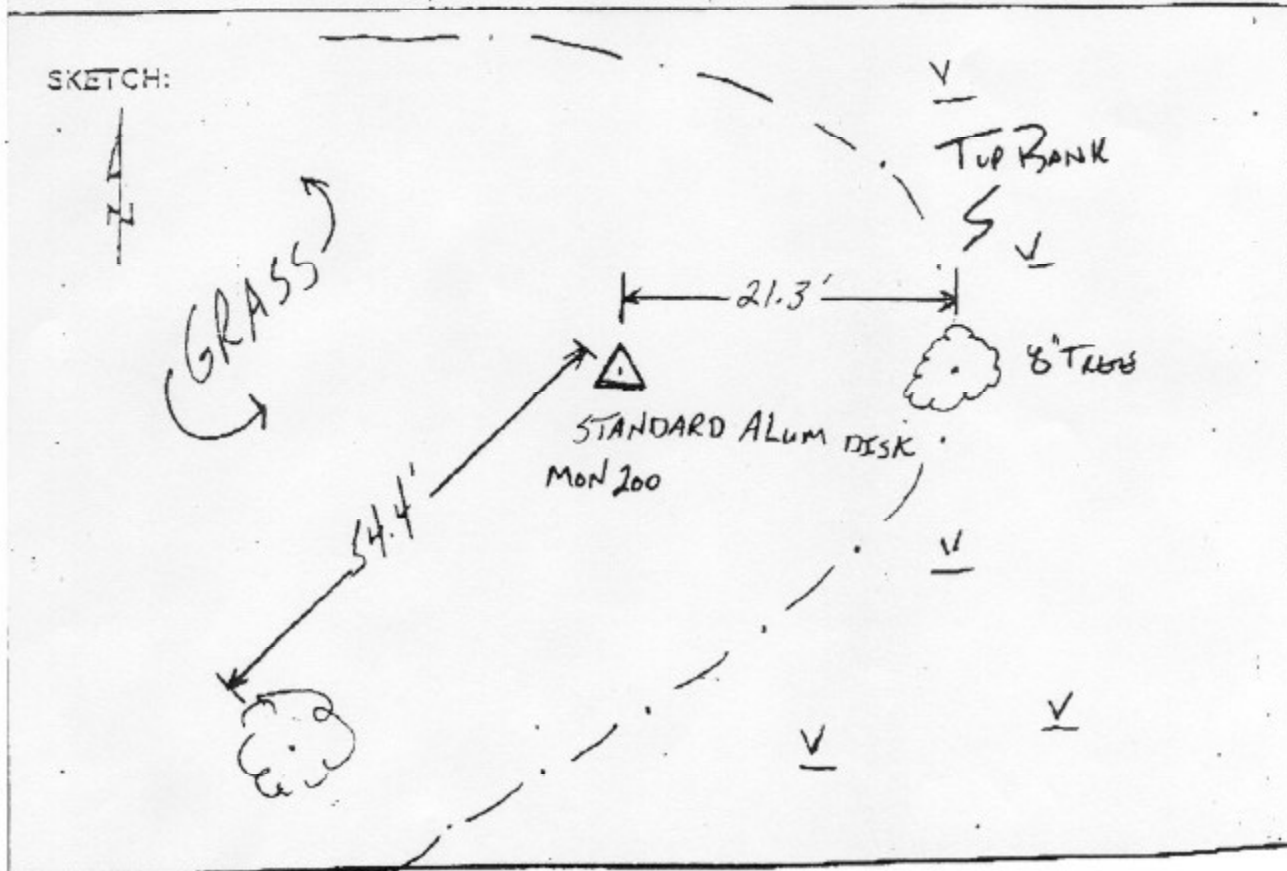 SKETCH:
N
GRASS
TOP BANK
21.3'
8" TREE
STANDARD ALUM DISK
MON 200
54.4'